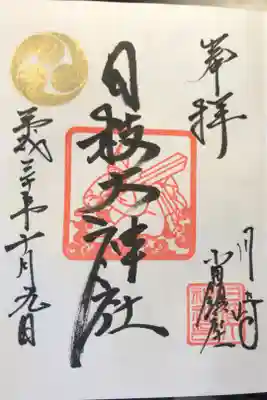 奉拝
川崎
小田鎮座
日枝大神社
平成三十年十月九日